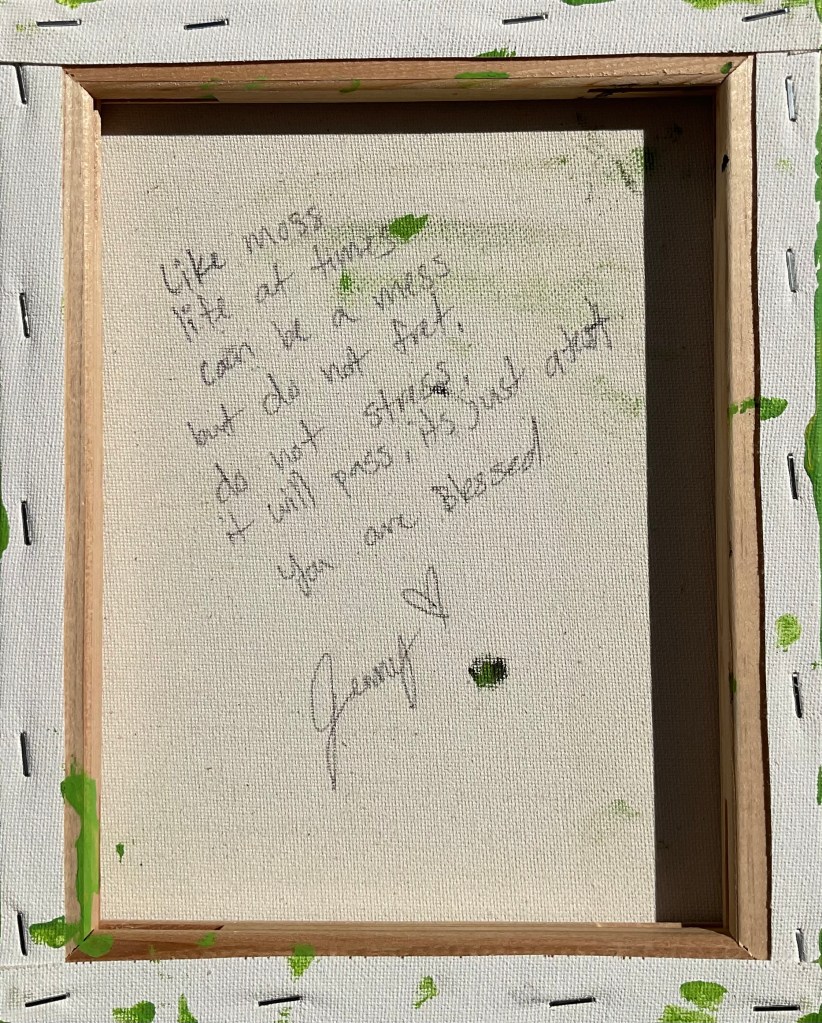 Like moss
life at times
can be a mess
but do not fret,
do not stress,
it will pass, its just a
You are Blessed
Jenny